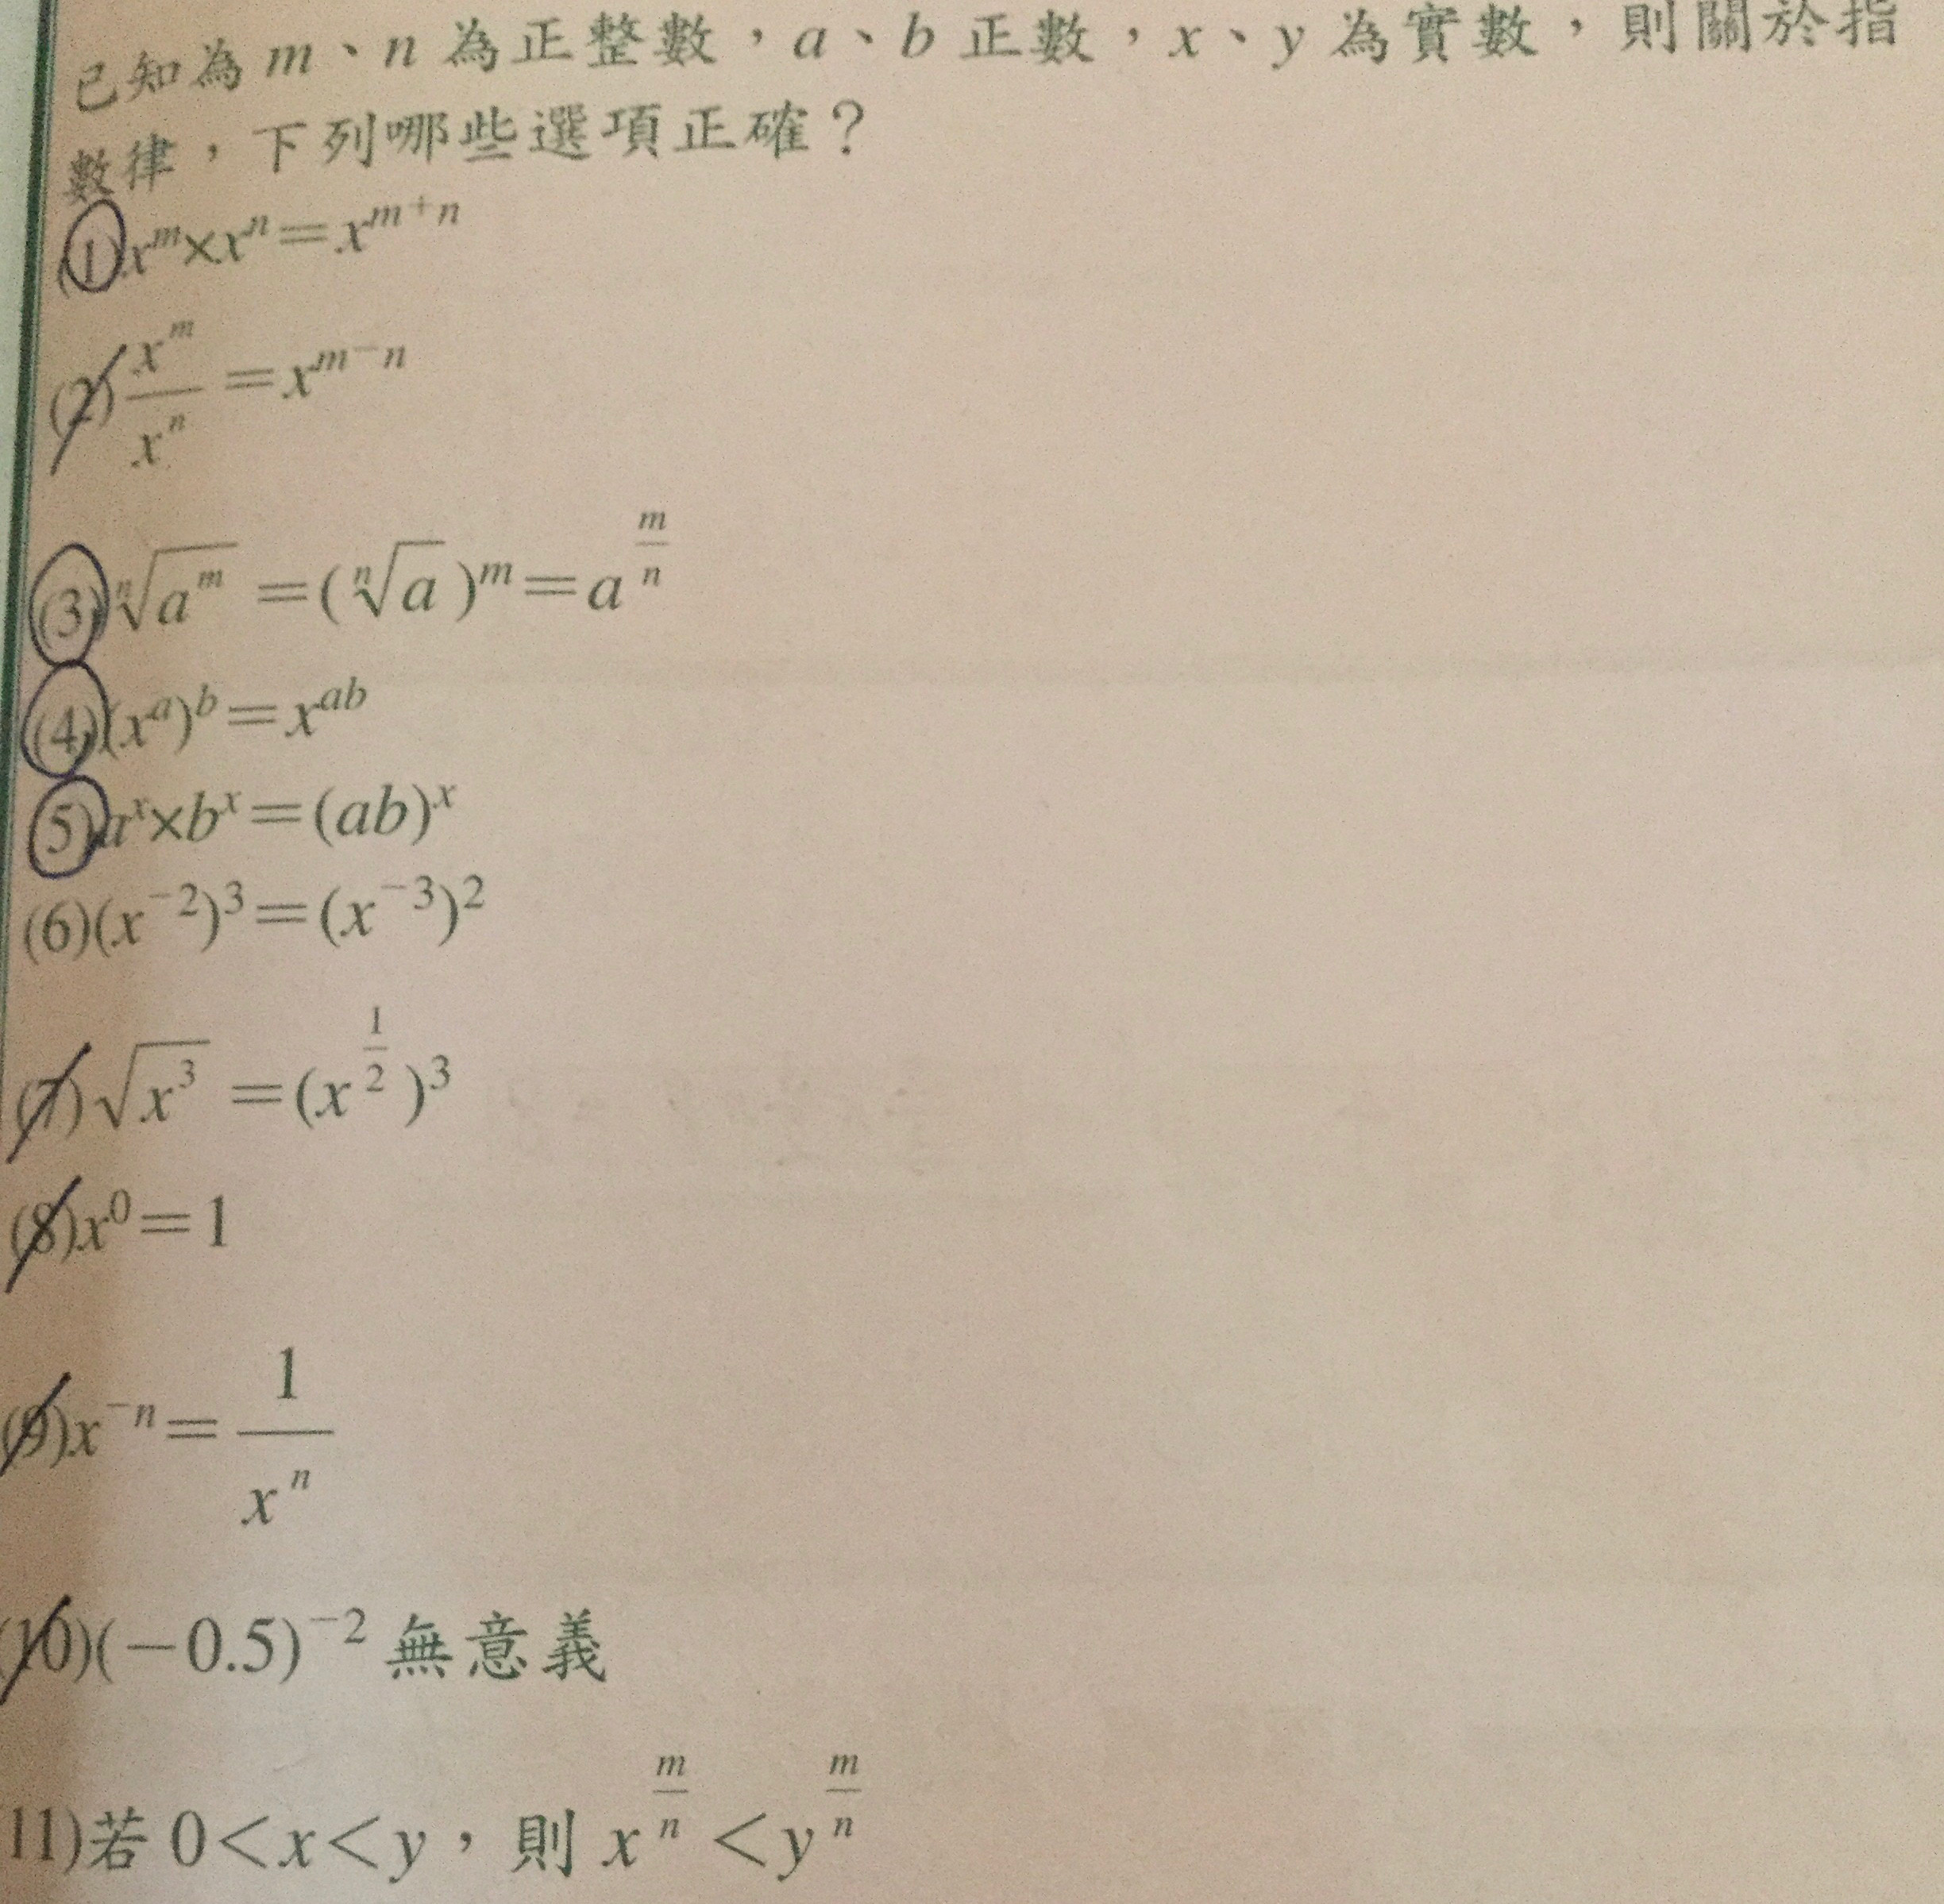 已知為 m、n 為正整數，a、b 正數，x、y 為實數，則關於指
數律，下列哪些選項正確？
(1) x^m×x^n=x^{m+n}
(2) \frac{x^m}{x^n}=x^{m-n}
(3) \sqrt[n]{a^m}=(\sqrt[n]{a})^m=a^{\frac{m}{n}}
(4) (x^a)^b=x^{ab}
(5) a^x×b^x=(ab)^x
(6) (x^{-2})^3=(x^{-3})^2
(7) \sqrt{x^3}=(x^{\frac{1}{2}})^3
(8) x^0=1
(9) x^{-n}=\frac{1}{x^n}
(10) (-0.5)^{-2} 無意義
11) 若 0<x<y，則 x^{\frac{m}{n}}<y^{\frac{m}{n}}